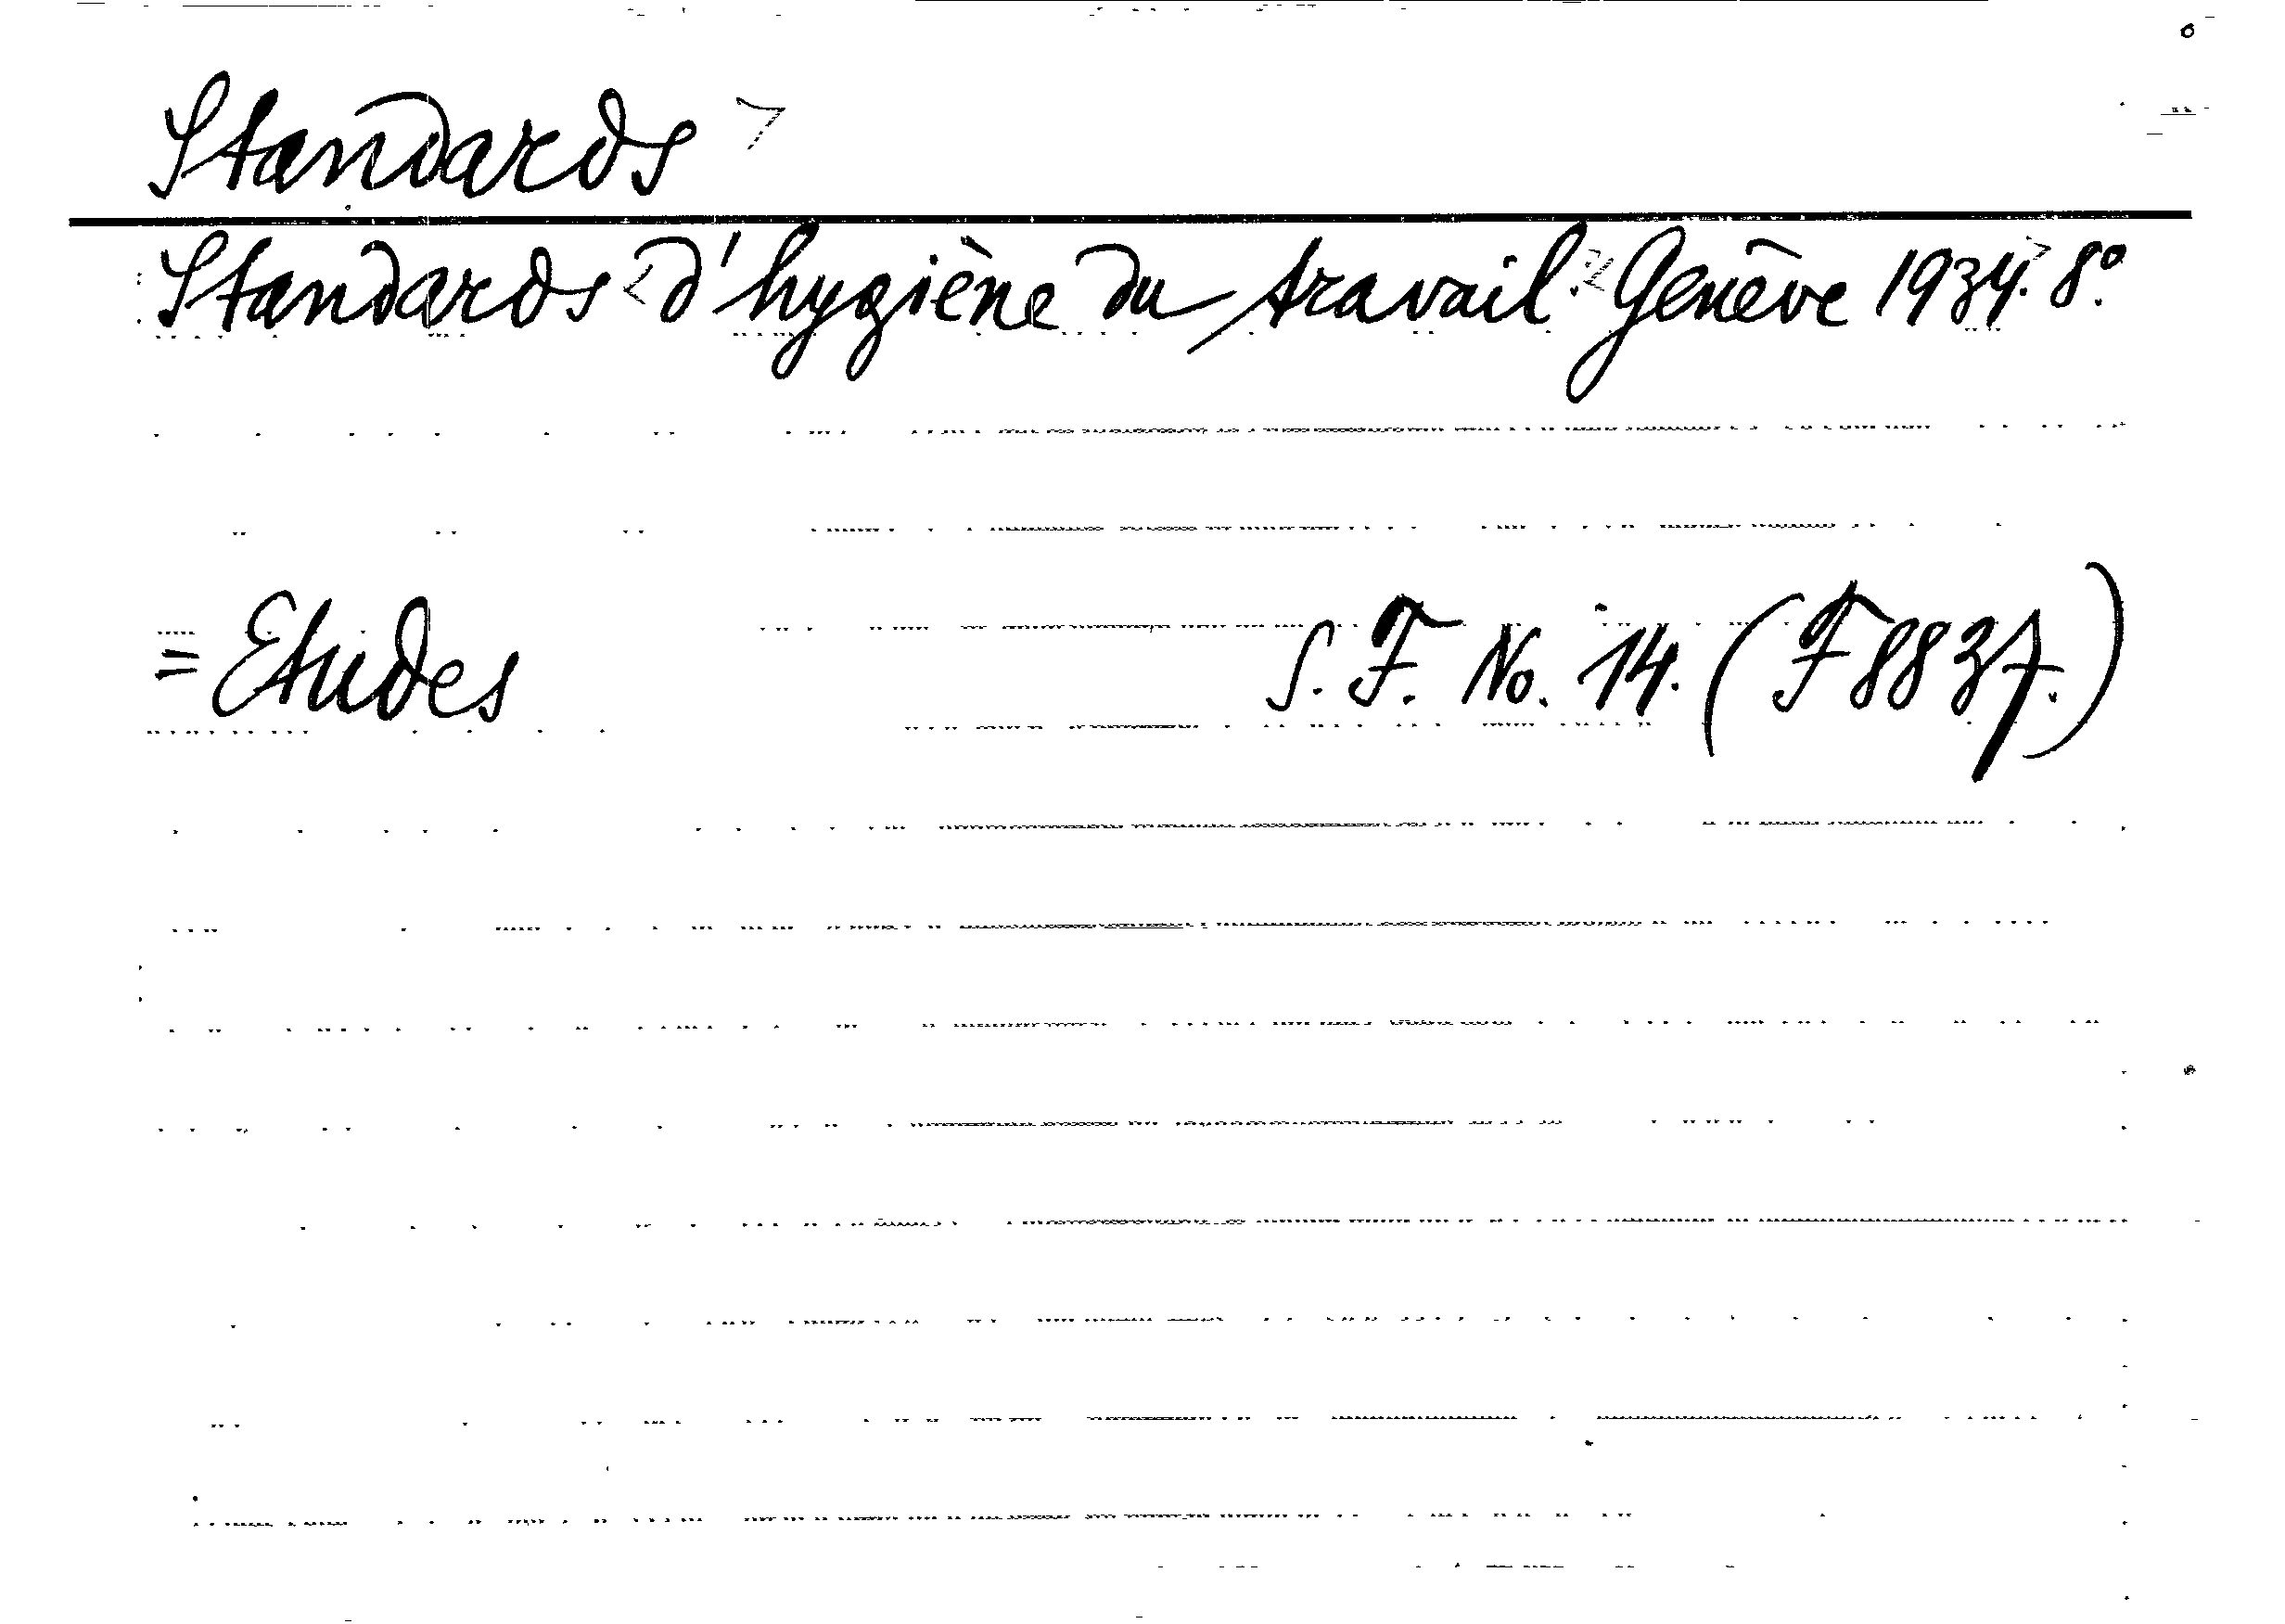 Standards
Standards d'hygiène du travail. Genève 1934. 8°.
= Etudes S. F. No. 14. (F 8837.)